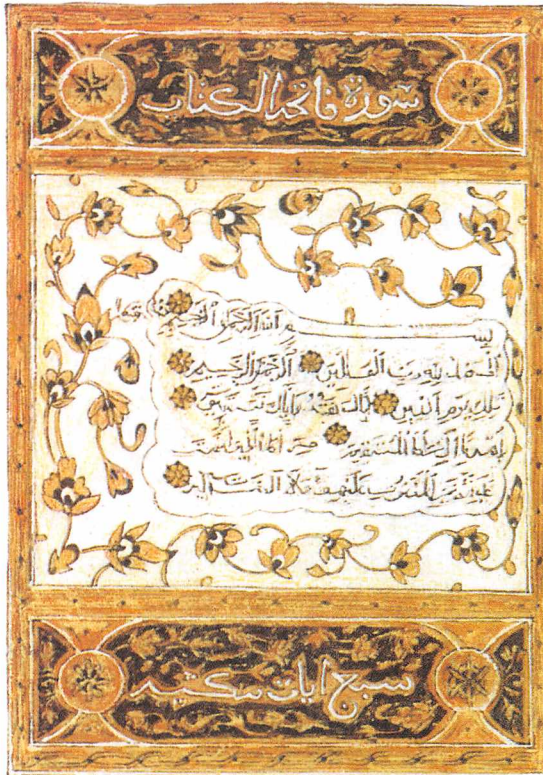 سورة فاتحة الكتاب
بسم الله الرحمن الرحيم
الحمد لله رب العالمين الرحمن الرحيم
ملك يوم الدين إياك نعبد وإياك نستعين
اهدنا الصراط المستقيم صراط الذين أنعمت
عليهم غير المغضوب عليهم ولا الضالين
سبع آيات مكية